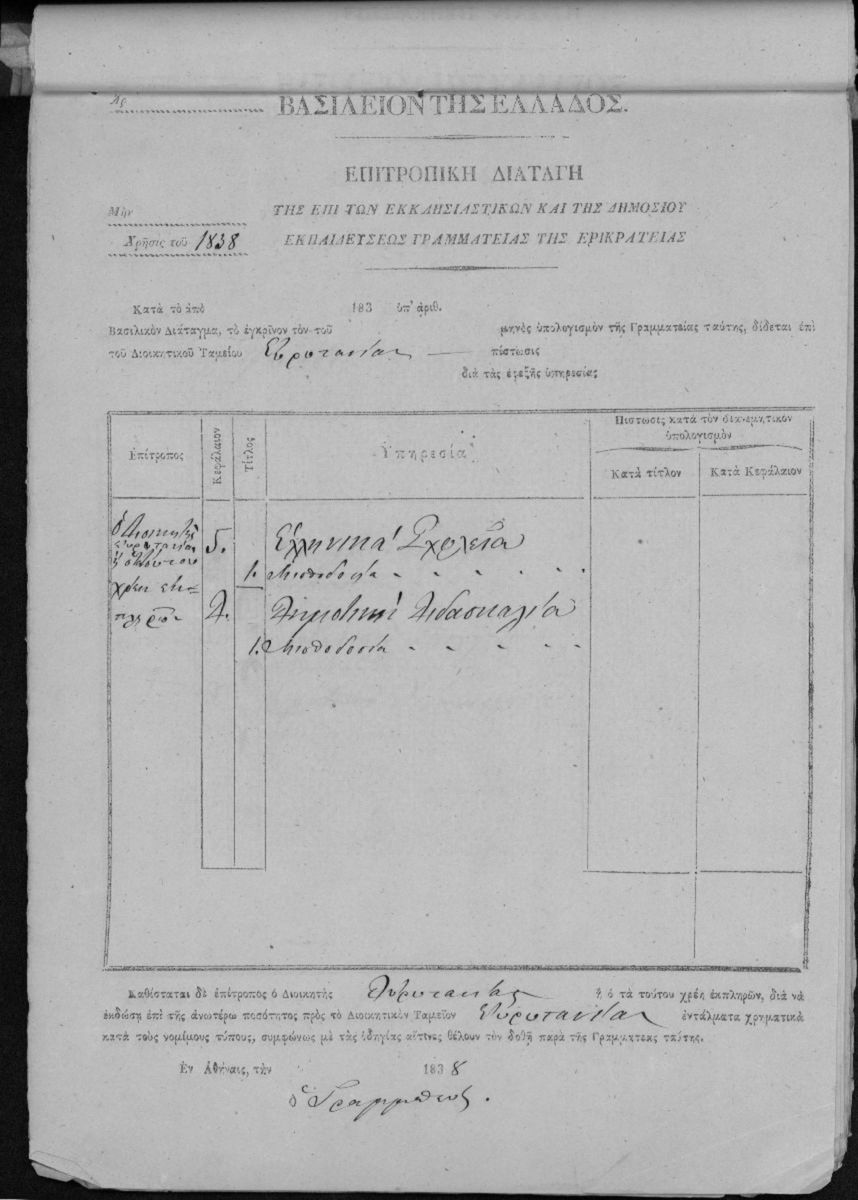 Ἀρ.
ΒΑΣΙΛΕΙΟΝ ΤΗΣ ΕΛΛΑΔΟΣ.
ΕΠΙΤΡΟΠΙΚΗ ΔΙΑΤΑΓΗ
Μὴν
ΤΗΣ ΕΠΙ ΤΩΝ ΕΚΚΛΗΣΙΑΣΤΙΚΩΝ ΚΑΙ ΤΗΣ ΔΗΜΟΣΙΟΥ
Χρῆσις τοῦ 1838
ΕΚΠΑΙΔΕΥΣΕΩΣ ΓΡΑΜΜΑΤΕΙΑΣ ΤΗΣ ΕΠΙΚΡΑΤΕΙΑΣ
Κατὰ τὸ ἀπὸ 183 ὑπ' ἀριθ.
Βασιλικὸν Διάταγμα, τὸ ἐγκρῖνον τὸν τοῦ μηνὸς ὑπολογισμὸν τῆς Γραμματείας ταύτης, δίδεται ἐπὶ
τοῦ Διοικητικοῦ Ταμείου Εὐρυτανίας πίστωσις
διὰ τὰς ἑφεξῆς ὑπηρεσίας
Ἐπίτροπος
Κεφάλαιον
Τίτλος
Ὑπηρεσία
Πίστωσις κατὰ τὸν διανεμητικὸν
ὑπολογισμὸν
Κατὰ τίτλον
Κατὰ Κεφάλαιον
ὁ Διοικητὴς
Εὐρυτανίας
ἢ ὁ τὰ τούτου
χρέη ἐκ=
πληρῶν
5. Ἑλληνικὰ Σχολεῖα
1. Μισθοδοσία " " " " "
Δημοτικὴ Διδασκαλία
1. Μισθοδοσία " " " " "
Καθίσταται δὲ ἐπίτροπος ὁ Διοικητὴς Εὐρυτανίας ἢ ὁ τὰ τούτου χρέη ἐκπληρῶν, διὰ νὰ
ἐκδώσῃ ἐπὶ τῆς ἀνωτέρω ποσότητος πρὸς τὸ Διοικητικὸν Ταμεῖον Εὐρυτανίας ἐντάλματα χρηματικὰ
κατὰ τοὺς νομίμους τύπους, συμφώνως μὲ τὰς ὁδηγίας αἵτινες θέλουν τὸν δοθῆ παρὰ τῆς Γραμματείας ταύτης.
Ἐν Ἀθήναις, τὴν 1838
ὁ Γραμματεὺς.